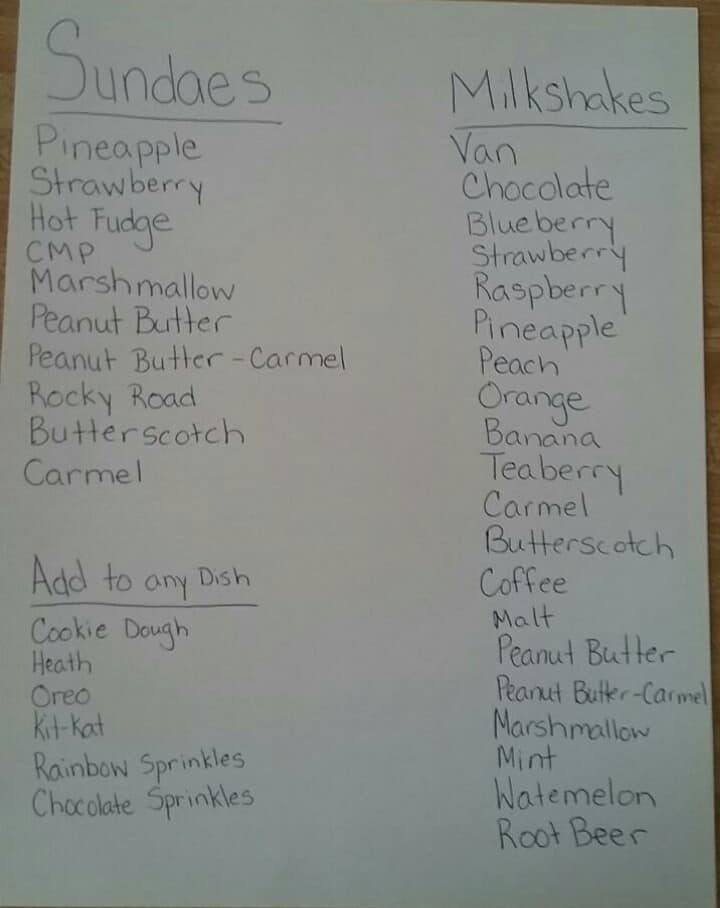 Sundaes
Pineapple
Strawberry
Hot Fudge
CMP
Marshmallow
Peanut Butter
Peanut Butter-Carmel
Rocky Road
Butterscotch
Carmel
Add to any Dish
Cookie Dough
Heath
Oreo
Kit-Kat
Rainbow Sprinkles
Chocolate Sprinkles
Milkshakes
Van
Chocolate
Blueberry
Strawberry
Raspberry
Pineapple
Peach
Orange
Banana
Teaberry
Carmel
Butterscotch
Coffee
Malt
Peanut Butter
Peanut Butter-Carmel
Marshmallow
Mint
Watemelon
Root Beer